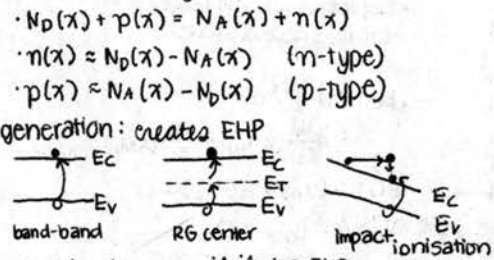 · N_D(x) + p(x) = N_A(x) + n(x)
· n(x) ≈ N_D(x) - N_A(x) (n-type)
· p(x) ≈ N_A(x) - N_D(x) (p-type)
generation: creates EHP
E_C E_C
E_T
E_V E_V
E_C
E_V
band-band RG center impact ionisation